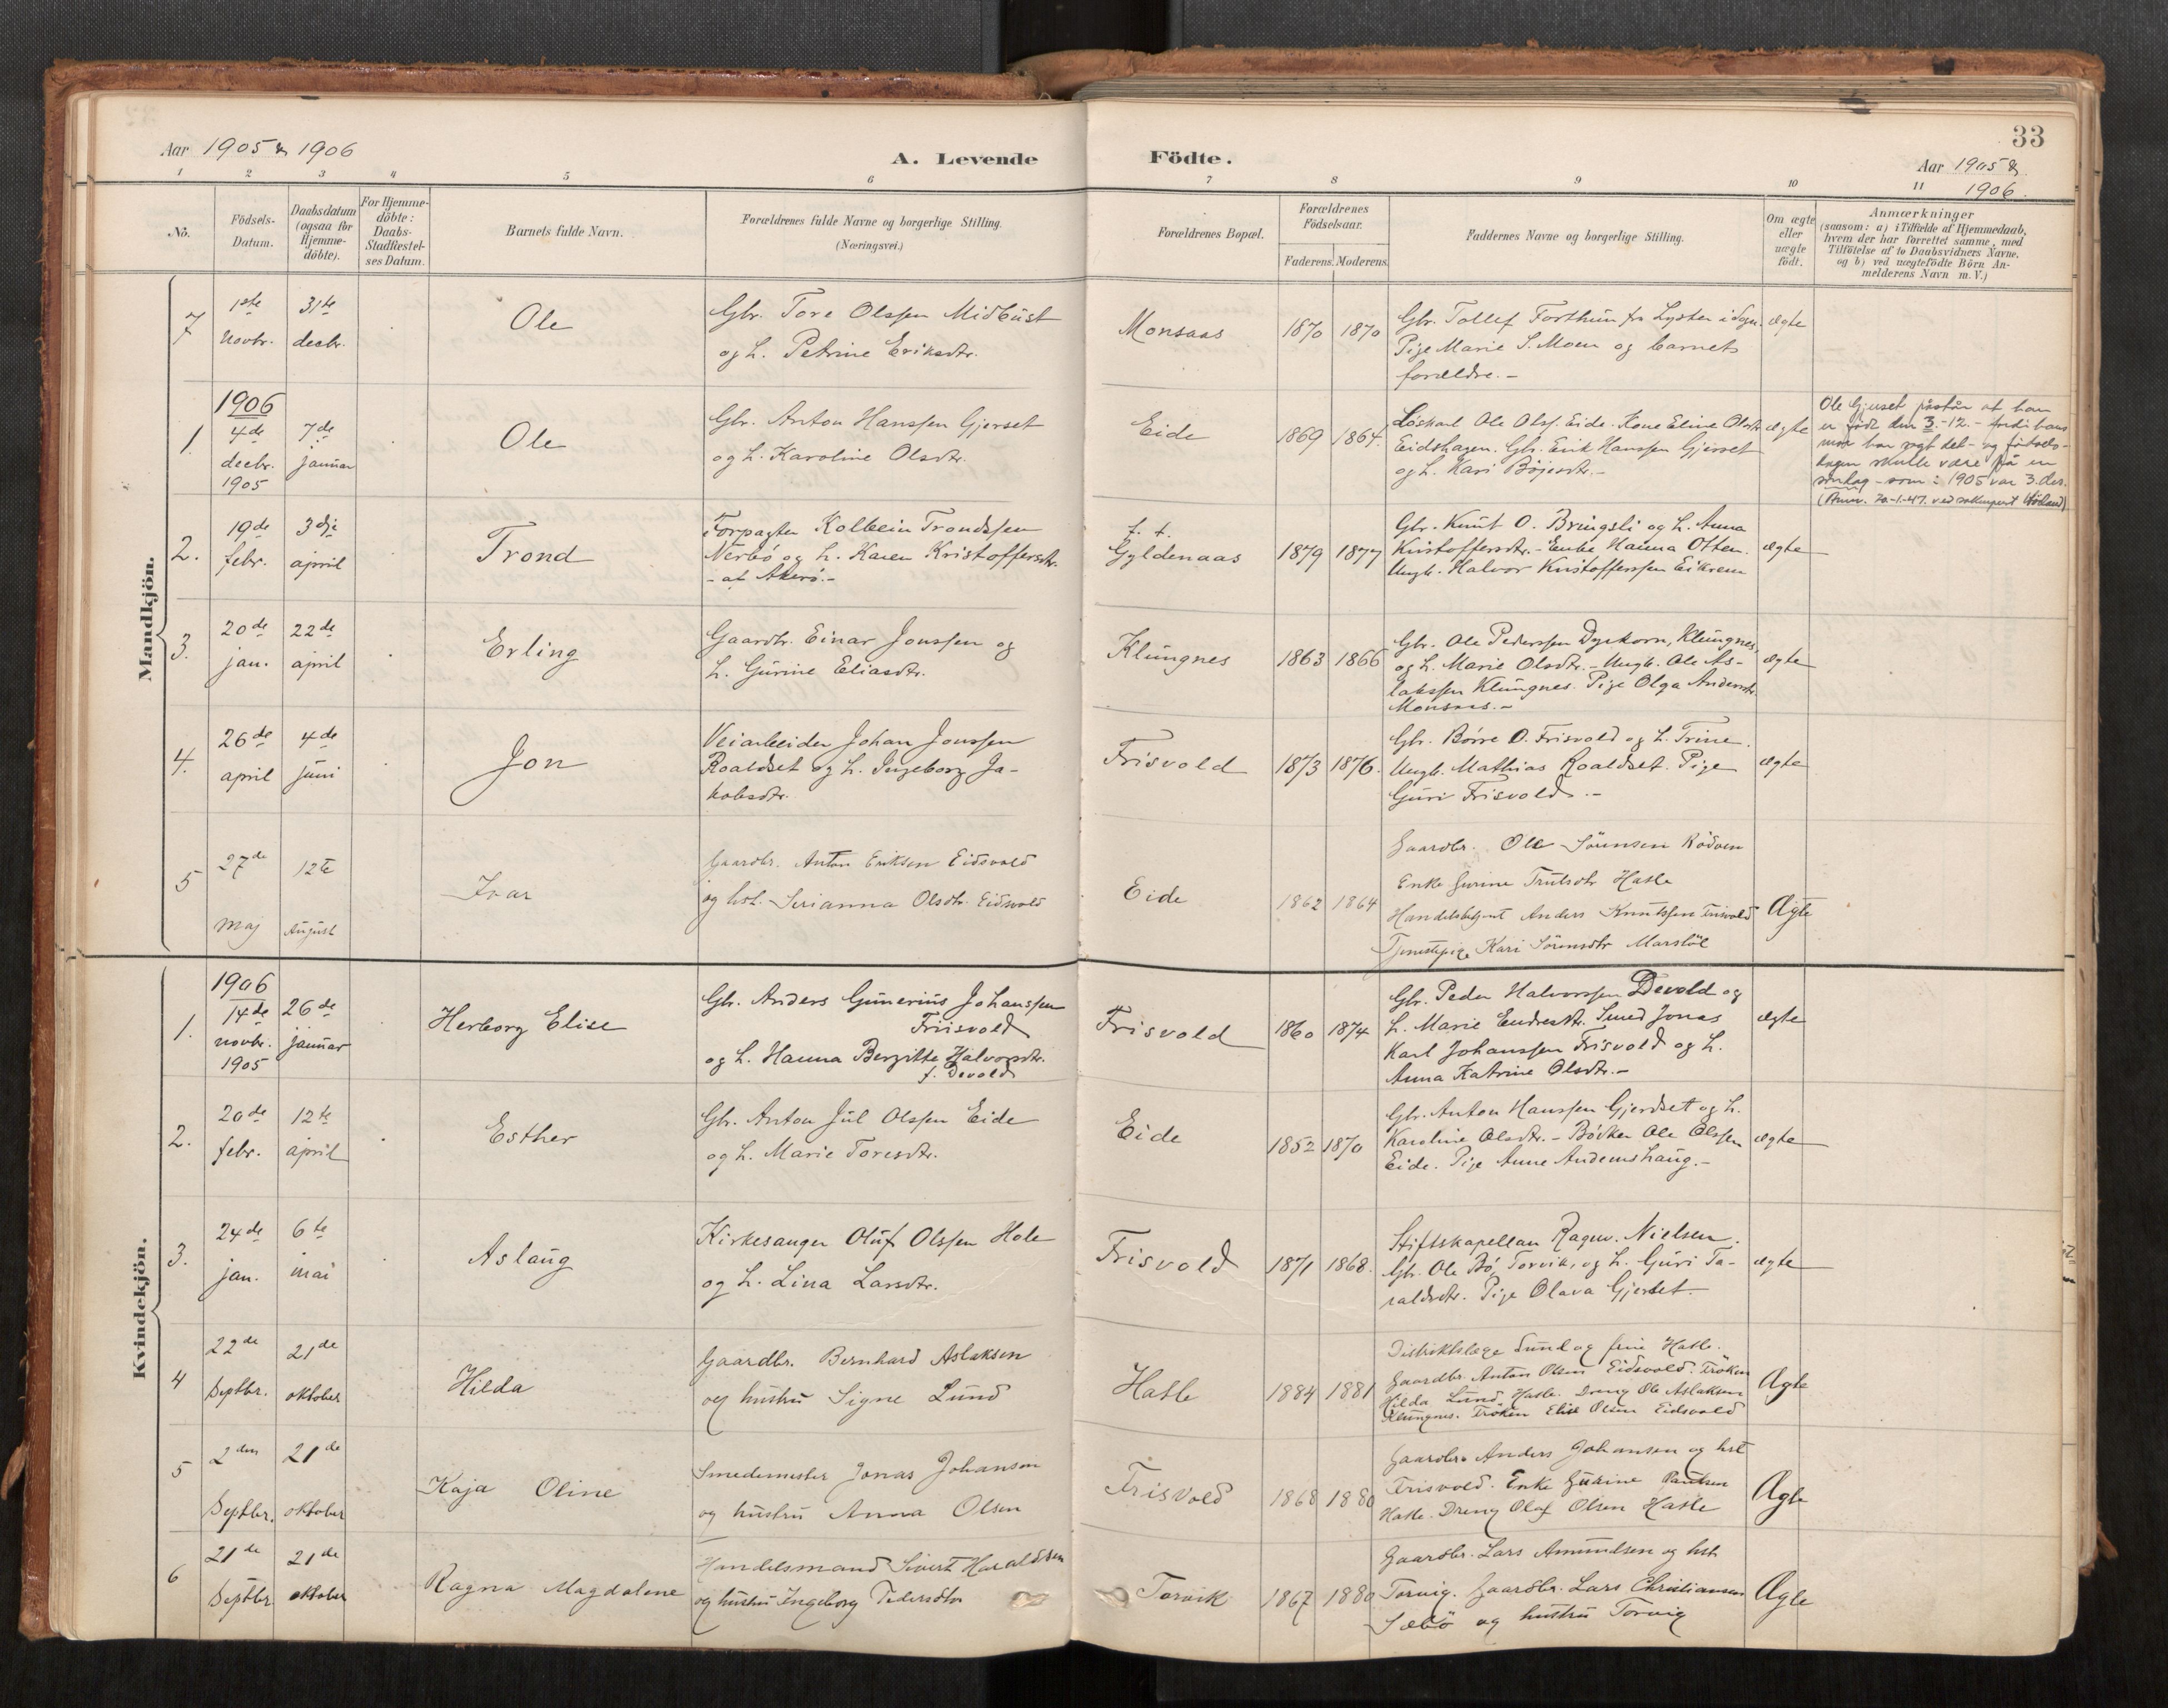 33
Aar 1905 & 1906
A. Levende Födte.
Aar 1905 & 1906.
1 2 3 4 5 6 7 8 9 10 11
No.
Födsels-Datum.
Daabsdatum (ogsaa for Hjemme-döbte).
For Hjemme-döbte: Daabs-Stadfæstel-ses Datum.
Barnets fulde Navn.
Forældrenes fulde Navne og borgerlige Stilling.
(Næringsvei.)
Forældrenes Bopæl.
Forældrenes Födselsaar.
Faderens. Moderens.
Faddernes Navne og borgerlige Stilling.
Om ægte eller uægte födt.
Anmærkninger
(saasom: a) i Tilfælde af Hjemmedaab,
hvem der har forrettet samme, med
Tilföielse af to Daabsvidners Navne,
og b) ved uægtefödte Börn An-
melderens Navn m. V.)
Mandkjön.
7
1ste novbr.
31te decbr.
Ole
Gbr. Tore Olssen Midbust
og h. Petrine Eriksdtr.
Monsaas
1870 1870
Gbr. Tollef Forthun fra Lyster i Sogn.
Pige Marie S. Moen og barnets
forældre.-
ægte
1.
1906
4de decbr. 1905
7de januar
Ole
Gbr. Anton Hanssen Gjerset
og h. Karoline Olsdtr.
Eide
1869 1864.
Løskarl Ole Olss. Eide. Kone Eline Olsdtr
Eidshagen. Gbr. Erik Hanssen Gjerset
og h. Kari Böjesdtr.-
ægte
Ole Gjerset påstår at han
er född den 3.-12.- fordi hans
mor har sagt det - og fødsels-
dagen skulle være på en
søndag - som i 1905 var 3. des.
2.
19de febr.
3dje april
Trond
Forpagter Kolbein Trondssen
Nerbö og h. Karen Kristoffersdtr.
- at Akerö.-
f. t.
Gyldenaas
1879 1877
Gbr. Knut O. Bringsli og h. Anna
Kristoffersdtr.- Enke Hanna Otten.
Ungk. Halvor Kristofferssen Eikrem
ægte
3.
20de jan.
22de april
Erling
Gaardbr. Einar Jonssen og
h. Gurine Eliasdtr.
Klungnes
1863 1866
Gbr. Ole Pederssen Dyrkorn, Klungnes,
og h. Marie Olsdtr.- Ungk. Ole As-
lakssen Klungnes. Pige Olga Andersdtr.
Monsaas.-
ægte
4.
26de april
4de juni
Jon
Veiarbeider Johan Jonssen
Roaldset og h. Ingeborg Ja-
kobsdtr.
Frisvold
1873 1876.
Gbr. Börre O. Frisvold og h. Trine.
Ungk. Mathias Roaldset. Pige
Guri Frisvold.-
ægte
5
27de maj
12te August
Ivar
Gaardbr. Anton Eriksen Eidsvold
og hst. Serianna Olsdtr. Eidsvold
Eide
1862 1864
Gaardbr. Ole Sörensen Rödven
Enke Gurine Trulsdtr Hasle
Handelsbetjent Anders Knutssen Frisvold
Tjenestepige Kari Sörensdtr Marstöl
Ægte
Kvindekjön.
1.
1906
14de novbr. 1905
26de januar
Herborg Elise
Gbr. Anders Gunerius Johanssen
Frisvold
og h. Hanna Bergitte Halvorsdtr.
f. Devold
Frisvold
1860 1874
Gbr. Peder Halvorssen Devold og
h. Marie Endresdtr. Smed Jonas
Karl Johanssen Frisvold og h.
Anna Katrine Olsdtr.-
ægte
2.
20de febr.
12te april
Esther
Gbr. Anton Jul Olssen Eide
og h. Marie Toresdtr.
Eide
1852 1870
Gbr. Anton Hanssen Gjerdset og h.
Karoline Olsdtr.- Böcker Ole Olssen
Eide. Pige Anne Andemshaug.-
ægte
3.
24de jan.
6te mai
Aslaug
Kirkesanger Oluf Olssen Hole
og h. Lina Larsdtr.
Frisvold
1871 1868.
Stiftskapellan Ragnv. Nielsen.
Gbr. Ole Bö, Torvik, og h. Guri Ta-
raldsdtr. Pige Olava Gjerset.
ægte
4
22de Septbr.
21de oktober
Hilda
Gaardbr. Bernhard Aslaksen
og hustru Signe Lund
Hasle
1884 1881
Distriktslæge Lund og frue Hasle.
Gaardbr. Anton Olsen Eidsvold. Fröken
Hilda Lund Hasle. Dreng Ole Aslaksen
Klungnes. Fröken Elise Olsen Eidsvold
Ægte
5
2den Septbr.
21de oktober
Kaja Oline
Smedemester Jonas Johansen
og hustru Anna Olsen
Frisvold
1868 1880
Gaardbr. Anders Johansen og hst
Frisvold. Enke Gurine Paulsen
Hasle. Dreng Olaf Olsen Hasle
Ægte
6
21de Septbr
21de oktober
Ragna Magdalene
Handelsmand Sivert Haraldsen
og hustru Ingeborg Pedersdtr
Torvik
1867 1880
Gaardbr. Lars Amundsen og hst
Torvig. Gaardbr. Lars Christiansen
Sæbö og hustru Torvig
Ægte